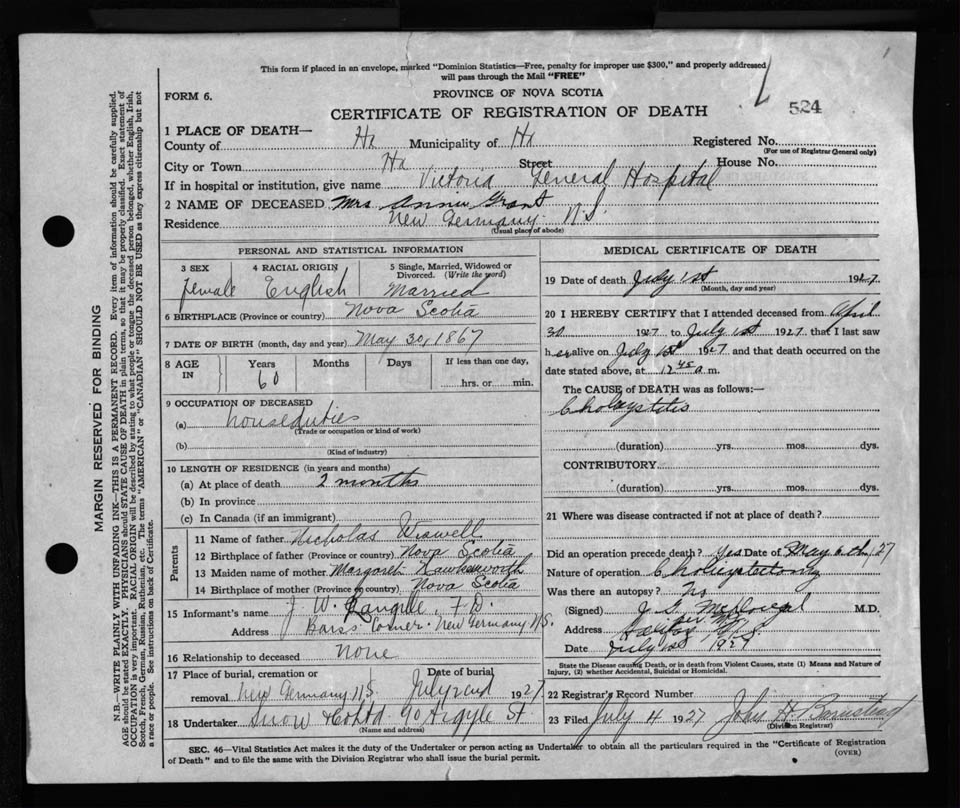 This form if placed in an envelope, marked "Dominion Statistics—Free, penalty for improper use $300," and properly addressed
will pass through the Mail "FREE"
FORM 6.
PROVINCE OF NOVA SCOTIA
CERTIFICATE OF REGISTRATION OF DEATH
524
1 PLACE OF DEATH—
County of Hx Municipality of Hx Registered No.
(For use of Registrar General only)
City or Town Hx Street House No.
If in hospital or institution, give name Victoria General Hospital
2 NAME OF DECEASED Mrs Annie Grant
Residence New Germany N.S.
(Usual place of abode)
PERSONAL AND STATISTICAL INFORMATION
3 SEX female
4 RACIAL ORIGIN English
5 Single, Married, Widowed or
Divorced. (Write the word)
Married
6 BIRTHPLACE (Province or country) Nova Scotia
7 DATE OF BIRTH (month, day and year) May 30, 1867
8 AGE IN
Years 60
Months
Days
If less than one day,
hrs. or min.
9 OCCUPATION OF DECEASED
(a) houseduties
(Trade or occupation or kind of work)
(b)
(Kind of industry)
10 LENGTH OF RESIDENCE (in years and months)
(a) At place of death 2 months
(b) In province
(c) In Canada (if an immigrant)
Parents
11 Name of father Nicholas
12 Birthplace of father (Province or country) Nova Scotia
13 Maiden name of mother Margaret Hawkesworth
14 Birthplace of mother (Province or country) Nova Scotia
15 Informant's name J. W. Langille, F.D.
Address Barss Corner New Germany N.S.
16 Relationship to deceased None
17 Place of burial, cremation or
removal New Germany N.S.
Date of burial
July 2nd 1927
18 Undertaker Snow & Co Ltd 90 Argyle St
(Name and address)
MEDICAL CERTIFICATE OF DEATH
19 Date of death July 1st 1927
(Month, day and year)
20 I HEREBY CERTIFY that I attended deceased from April
30 1927 to July 1st 1927 that I last saw
her alive on July 1st 1927 and that death occurred on the
date stated above, at 12 45 a.m.
The CAUSE of DEATH was as follows:
Cholcystitis
(duration) yrs. mos. dys.
CONTRIBUTORY
(duration) yrs. mos. dys.
21 Where was disease contracted if not at place of death?
Did an operation precede death? Yes Date of May 6th, 27
Nature of operation Cholicystectomy
Was there an autopsy? No
(Signed) J. G. McDougal M.D.
Address Halifax N.S.
Date July 1st 1927
State the Disease causing Death, or in death from Violent Causes, state (1) Means and Nature of
Injury, (2) whether Accidental, Suicidal or Homicidal.
22 Registrar's Record Number
23 Filed July 4 1927 John H Barnstead
(Division Registrar)
SEC. 46—Vital Statistics Act makes it the duty of the Undertaker or person acting as Undertaker to obtain all the particulars required in the "Certificate of Registration
of Death" and to file the same with the Division Registrar who shall issue the burial permit.
(OVER)
MARGIN RESERVED FOR BINDING
N.B.—WRITE PLAINLY WITH UNFADING INK—THIS IS A PERMANENT RECORD. Every item of information should be carefully supplied.
AGE should be stated EXACTLY. PHYSICIANS should STATE CAUSE OF DEATH in plain terms, so that it may be properly classified. Exact statement of
OCCUPATION is very important. RACIAL ORIGIN will be described by stating to what people or tongue the deceased person belonged, whether English, Irish,
Scotch, French, German, Russian, Ruthenian, etc. The terms "AMERICAN" or "CANADIAN" SHOULD NOT BE USED as they express citizenship but not
a race or people. See instructions on back of Certificate.